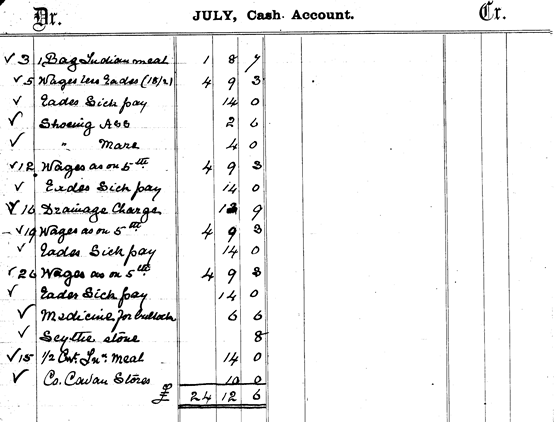 Dr. JULY, Cash Account. Cr.
✓ 3 1 Bag Indian meal 1 8 7
✓ 5 Wages less Eades (18/2) 4 9 3
✓ Eades Sick pay 14 0
✓ Shoeing Ass 2 6
✓ " Mare 4 0
✓ 12 Wages as on 5th 4 9 3
✓ Eades Sick pay 14 0
✓ 16 Drainage Charge 13 9
✓ 19 Wages as on 5th 4 9 3
✓ Eades Sick pay 14 0
✓ 26 Wages as on 5th 4 9 3
✓ Eades Sick pay 14 0
✓ Medicine for bullock 6 6
✓ Scythe stone 8
✓ 15 1/2 Cwt. Inn. meal 14 0
✓ Co. Cavan Stores 10 0
£ 24 12 6